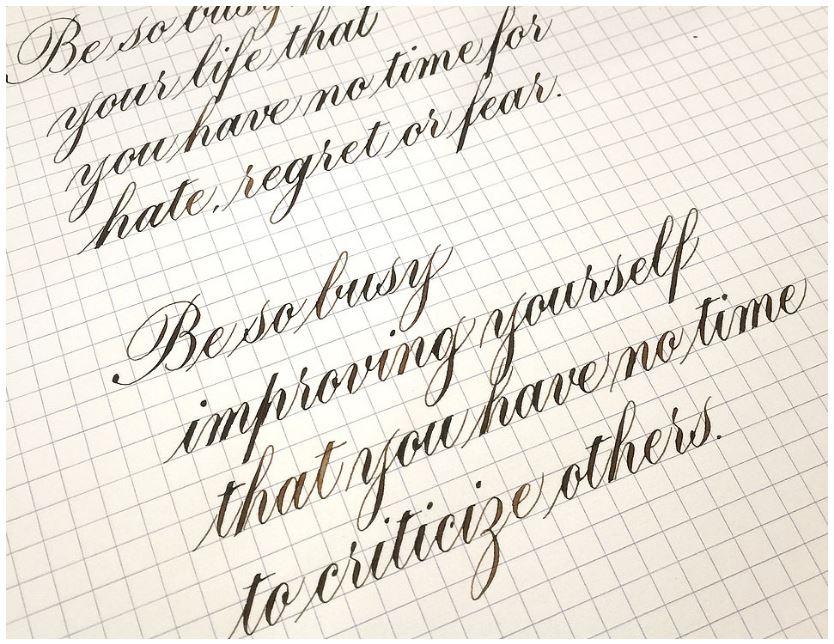 Be so busy
your life that
you have no time for
hate, regret or fear.
Be so busy
improving yourself
that you have no time
to criticize others.